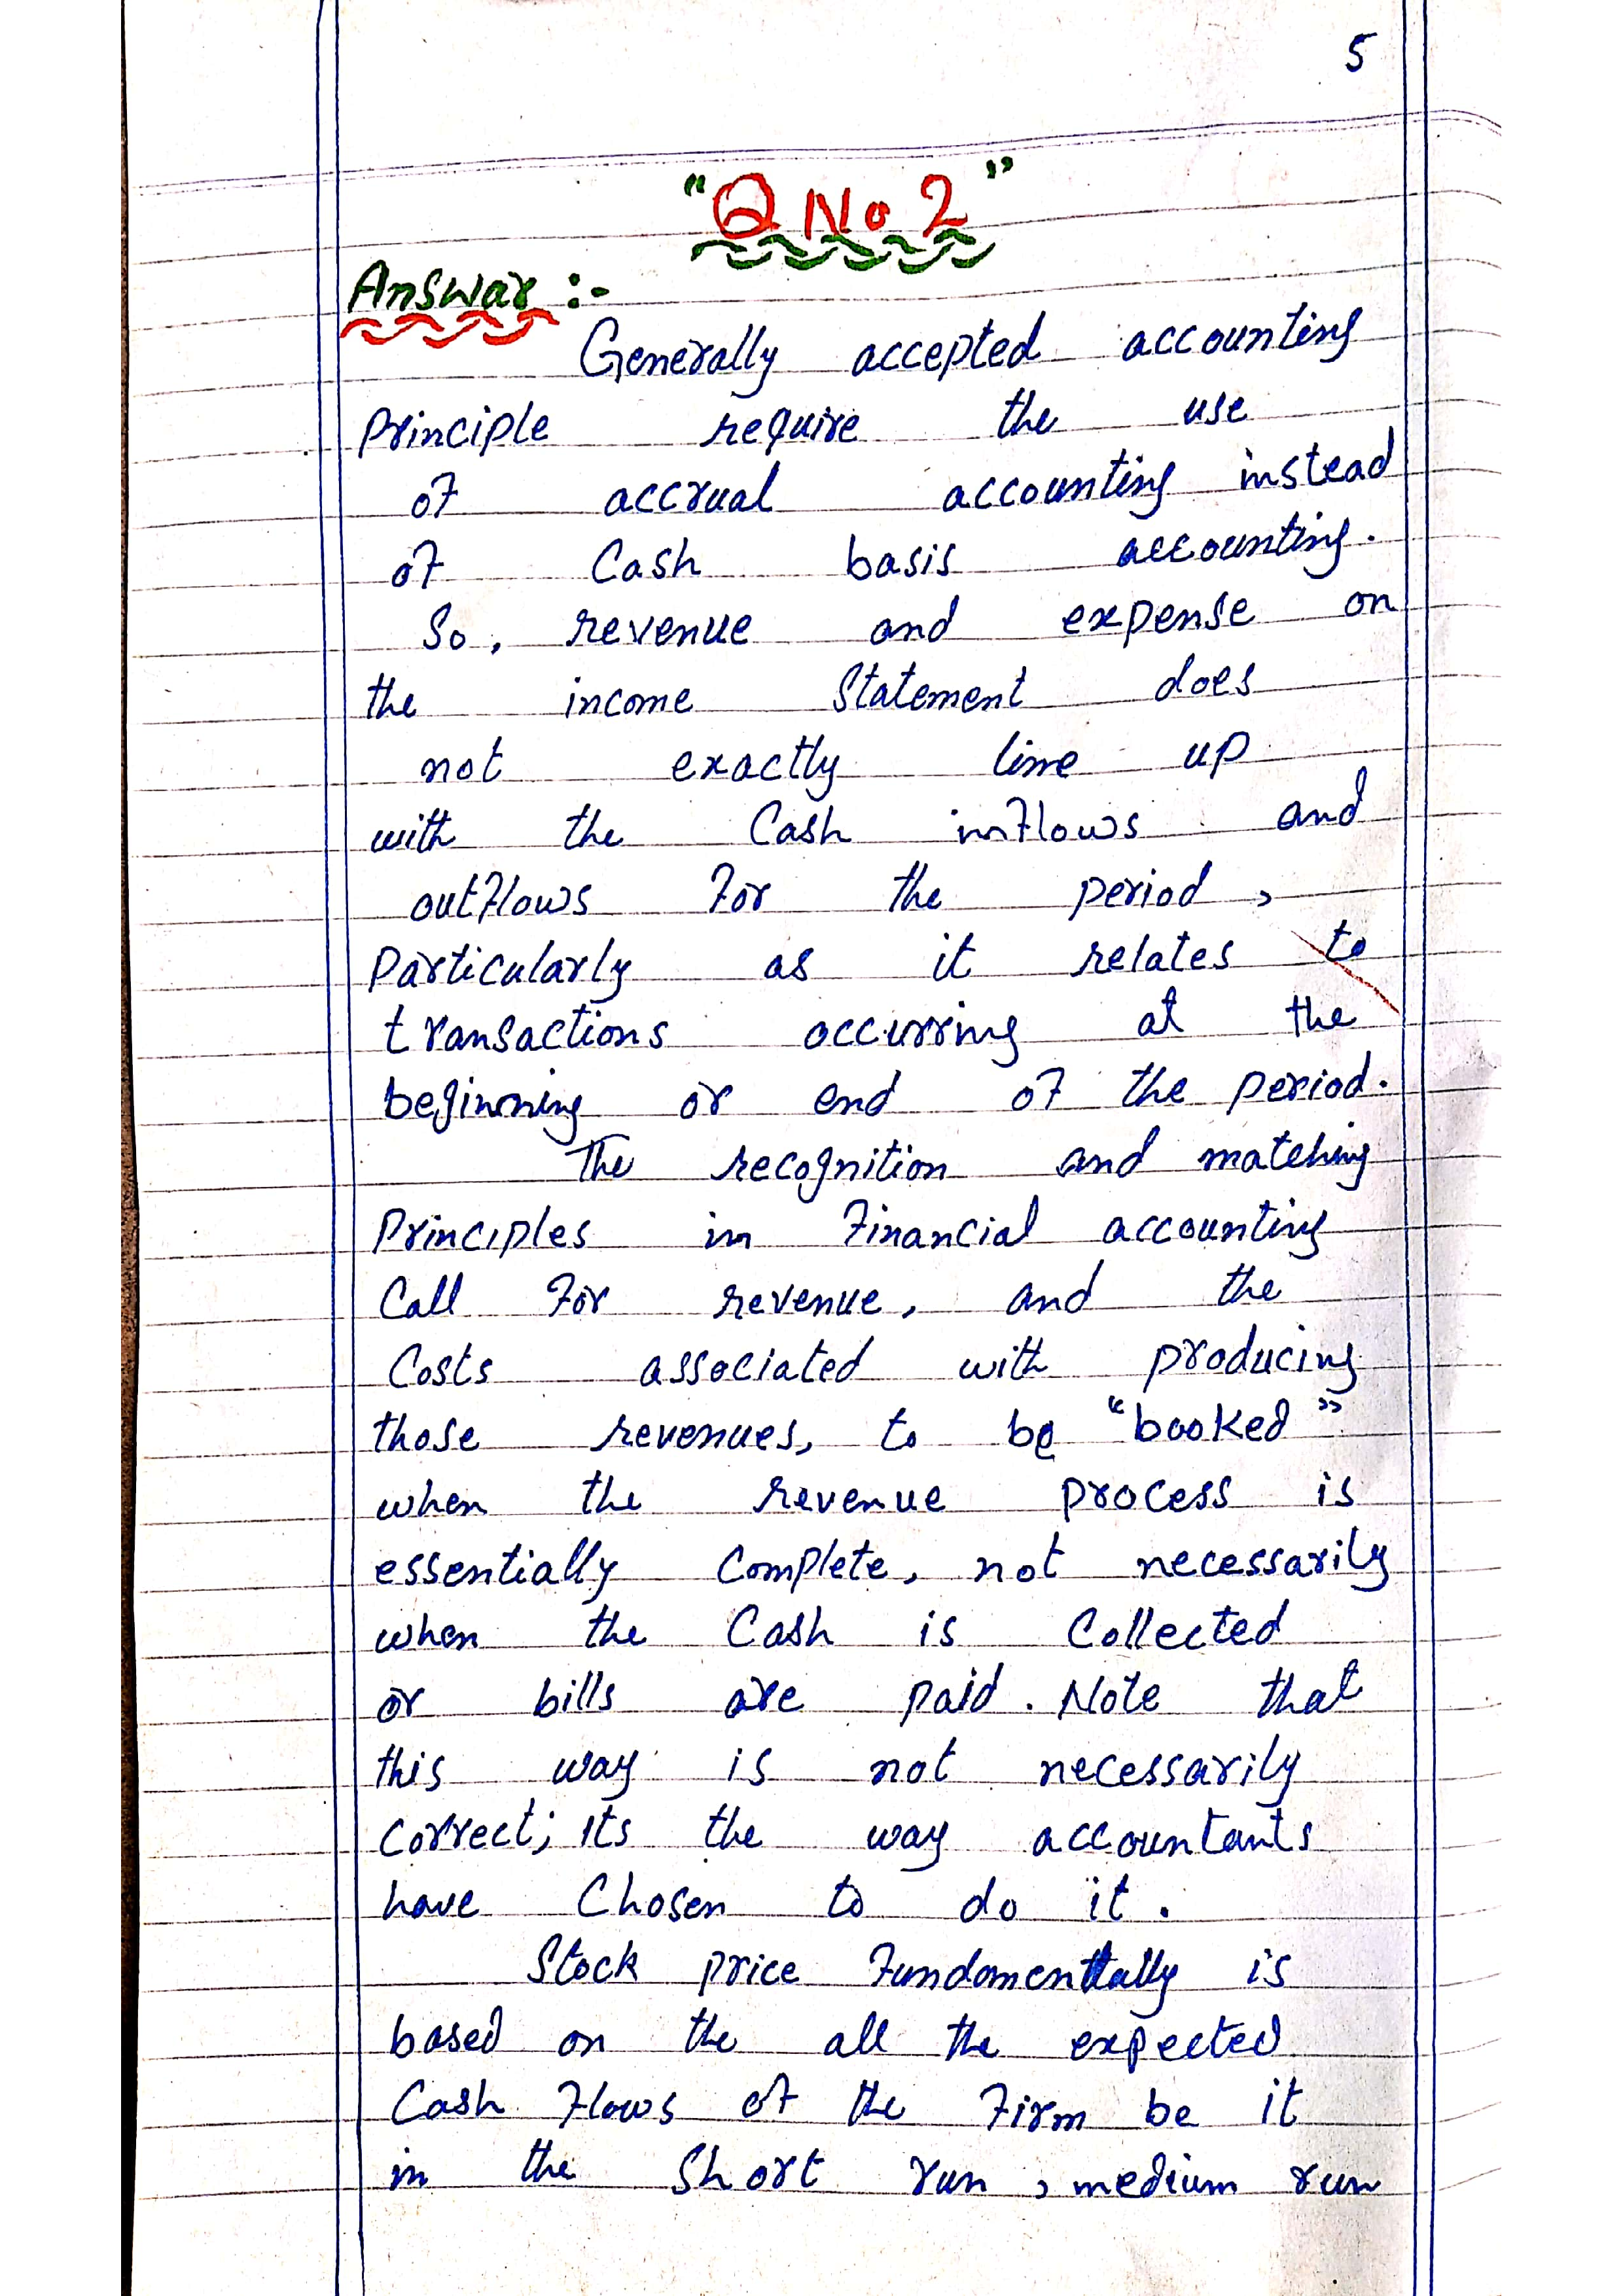 5
"Q No 2"
Answar :-
Generally accepted accounting
Principle require the use
of accrual accounting instead
of Cash basis accounting.
So, revenue and expense on
the income Statement does
not exactly line up
with the Cash inflows and
outflows for the period,
Particularly as it relates to
transactions occurring at the
beginning or end of the period.
The recognition and matching
Principles in Financial accounting
Call for revenue, and the
Costs associated with producing
those revenues, to be "booked"
when the revenue process is
essentially Complete, not necessarily
when the Cash is Collected
or bills are paid. Note that
this way is not necessarily
correct; its the way accountants
have Chosen to do it.
Stock price Fundomentally is
based on the all the expected
Cash Flows of the Firm be it
in the Short run, medium run